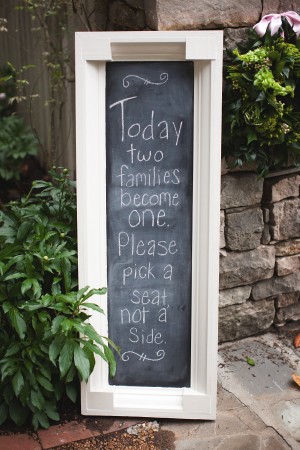 Today
two
families
become
one.
Please
pick a
seat
not a
side.